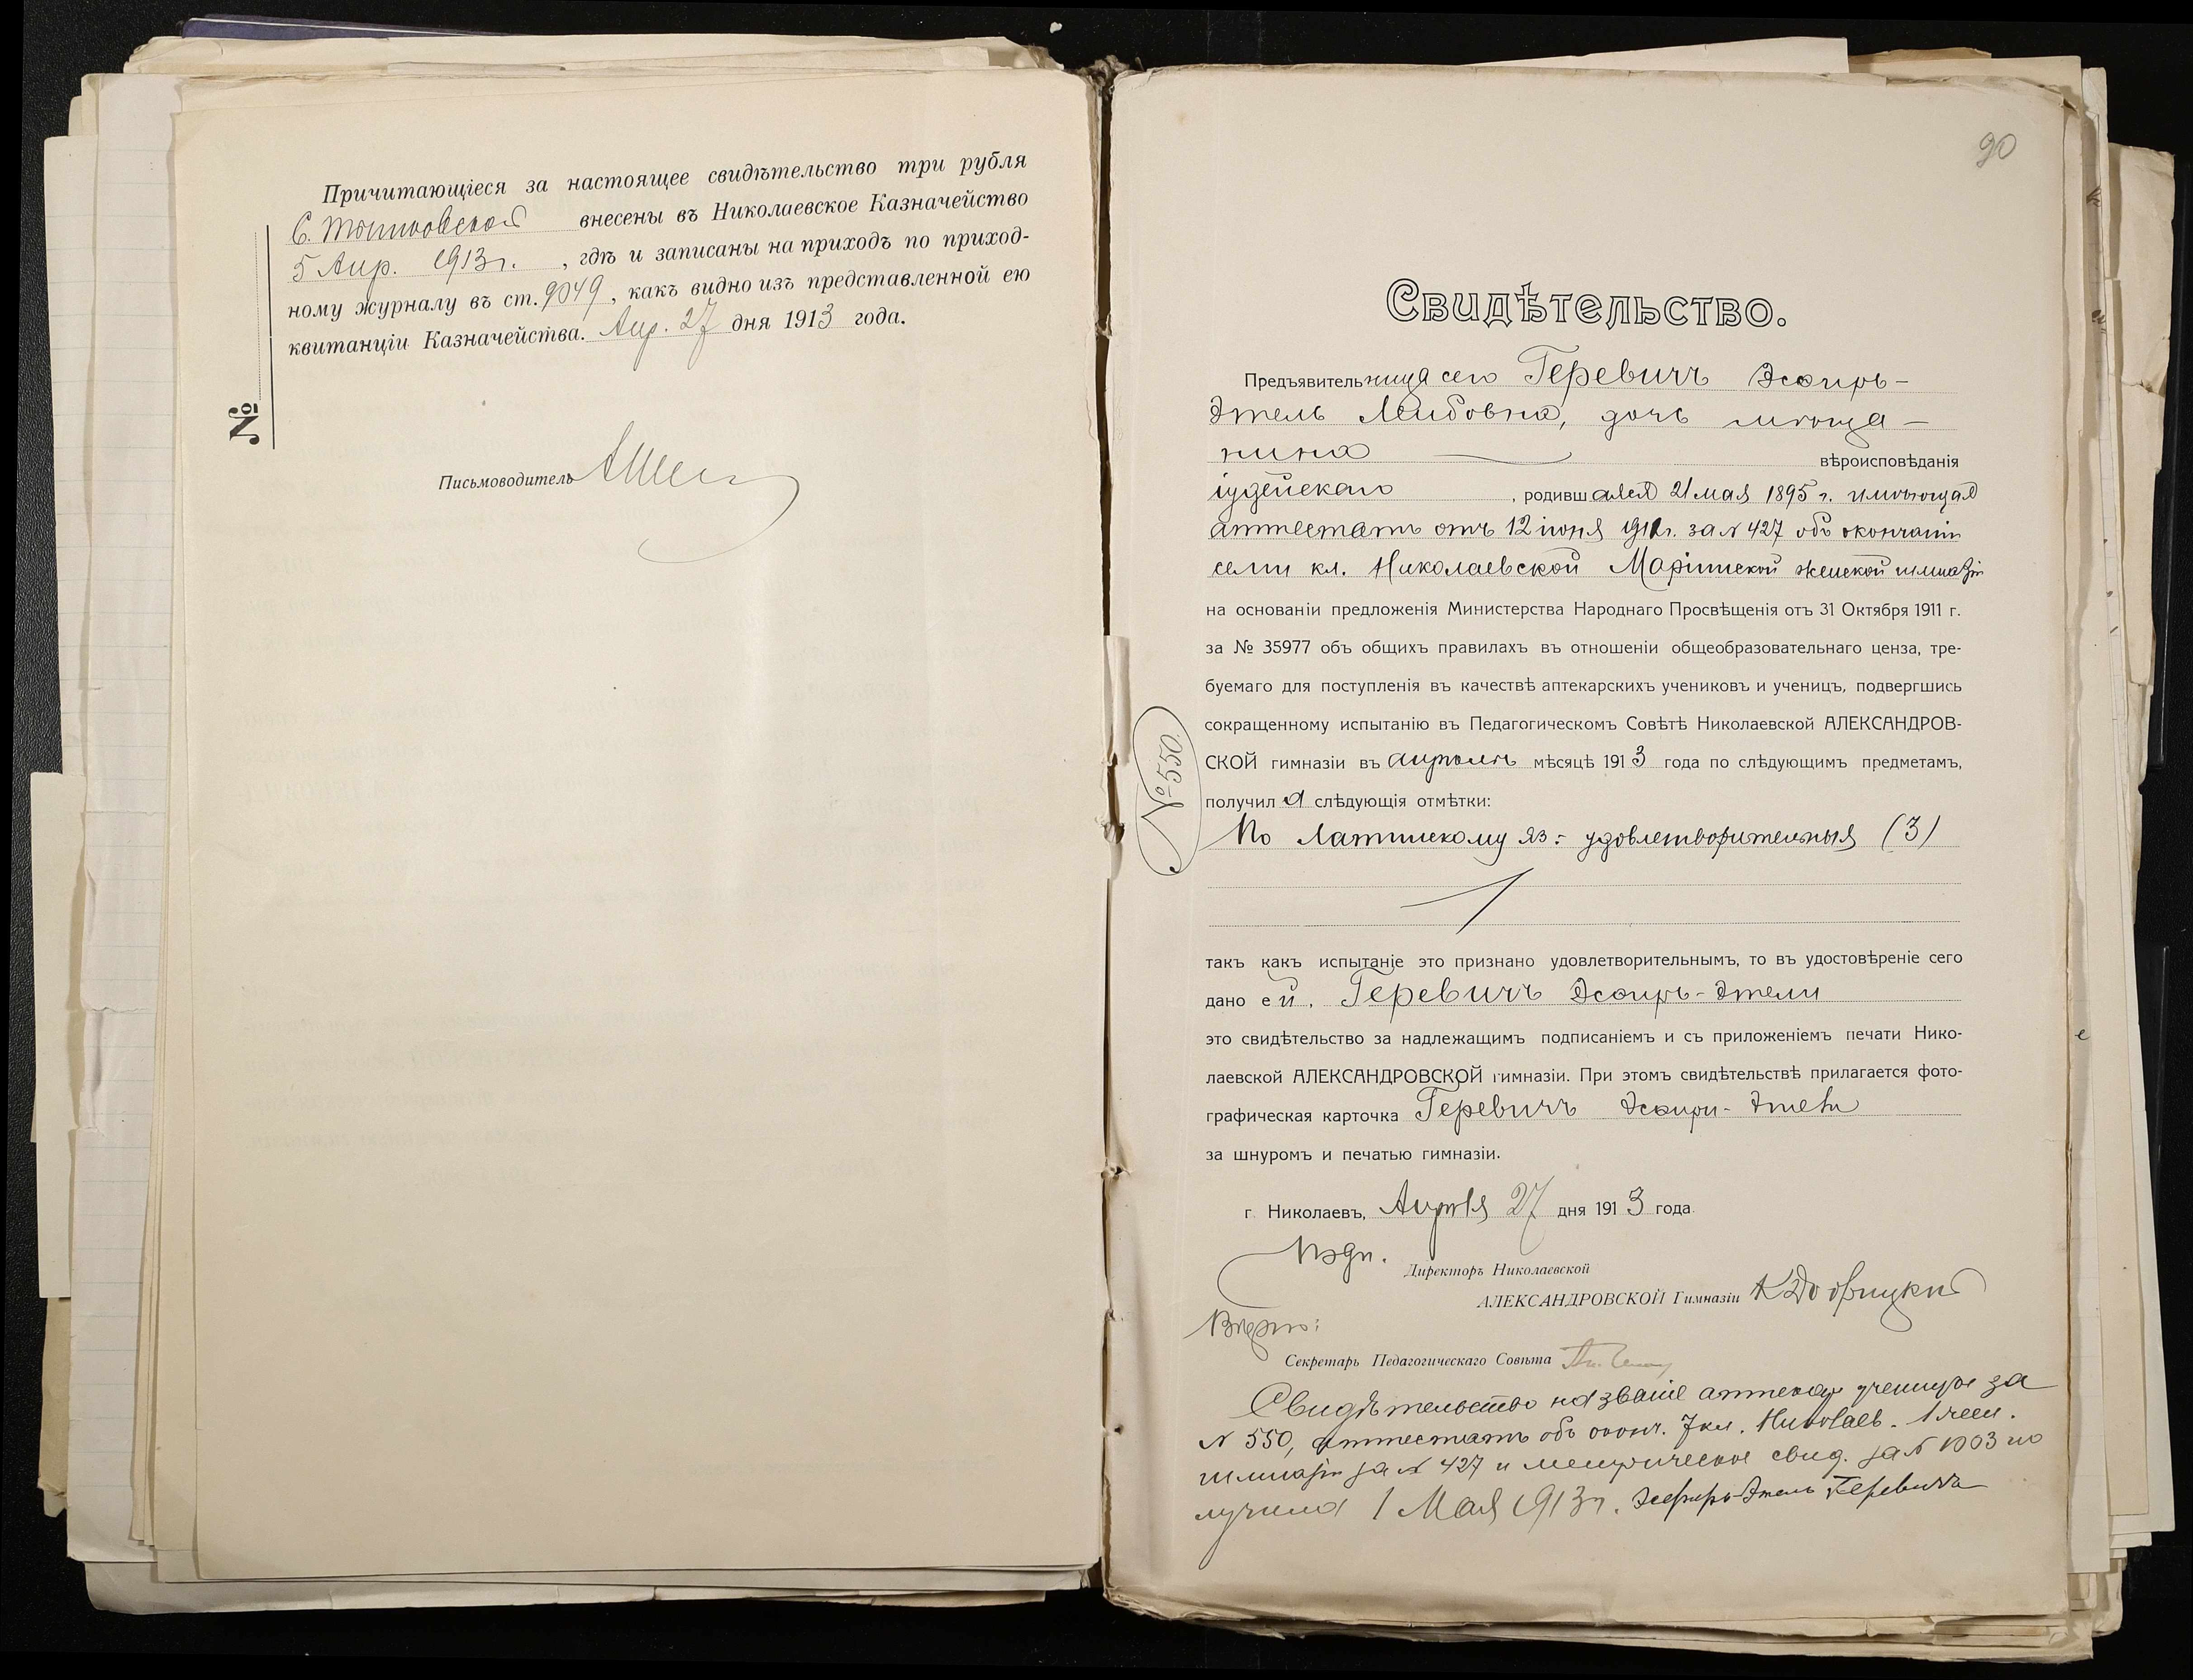 Причитающіеся за настоящее свидѣтельство три рубля
С. внесены въ Николаевское Казначейство
5 Апр. 1913 г. , гдѣ и записаны на приходъ по приход-
ному журналу въ ст. 9049, какъ видно изъ представленной ею
квитанціи Казначейства. Апр. 27 дня 1913 года.
№
Письмоводитель
90
Свидѣтельство.
Предъявительница сего Геревичъ Эсѳирь-
Этель Лейбовна, дочь мѣща-
нина вѣроисповѣданія
іудейскаго , родившаяся 21 мая 1895 г. имѣющая
аттестатъ отъ 12 іюня 1912 г. за № 427 объ окончаніи
семи кл. Николаевской Маріинской женской гимназіи
на основаніи предложенія Министерства Народнаго Просвѣщенія отъ 31 Октября 1911 г.
за № 35977 объ общихъ правилахъ въ отношеніи общеобразовательнаго ценза, тре-
буемаго для поступленія въ качествѣ аптекарскихъ учениковъ и ученицъ, подвергшись
сокращенному испытанію въ Педагогическомъ Совѣтѣ Николаевской АЛЕКСАНДРОВ-
СКОЙ гимназіи въ апрѣлѣ мѣсяцѣ 1913 года по слѣдующимъ предметамъ,
получила слѣдующія отмѣтки:
№ 550.
По Латинскому яз: удовлетворительныя (3)
такъ какъ испытаніе это признано удовлетворительнымъ, то въ удостовѣреніе сего
дано ей, Геревичъ Эсѳирь-Этели
это свидѣтельство за надлежащимъ подписаніемъ и съ приложеніемъ печати Нико-
лаевской АЛЕКСАНДРОВСКОЙ гимназіи. При этомъ свидѣтельствѣ прилагается фото-
графическая карточка Геревичъ Эсѳири-Этели
за шнуромъ и печатью гимназіи.
г. Николаевъ, Апрѣля 27 дня 1913 года.
Подп. Директоръ Николаевской
АЛЕКСАНДРОВСКОЙ Гимназіи
Вѣрно:
Секретарь Педагогическаго Совѣта
Свидѣтельство на званіе аптекар ученицы за
№ 550, аттестатъ объ оконч. 7 кл. Николаев. 1 жен.
гимназіи за № 427 и метрическое свид. за № 1003 по
лучила 1 Мая 1913 г. Эсфирь-Этель Геревичъ